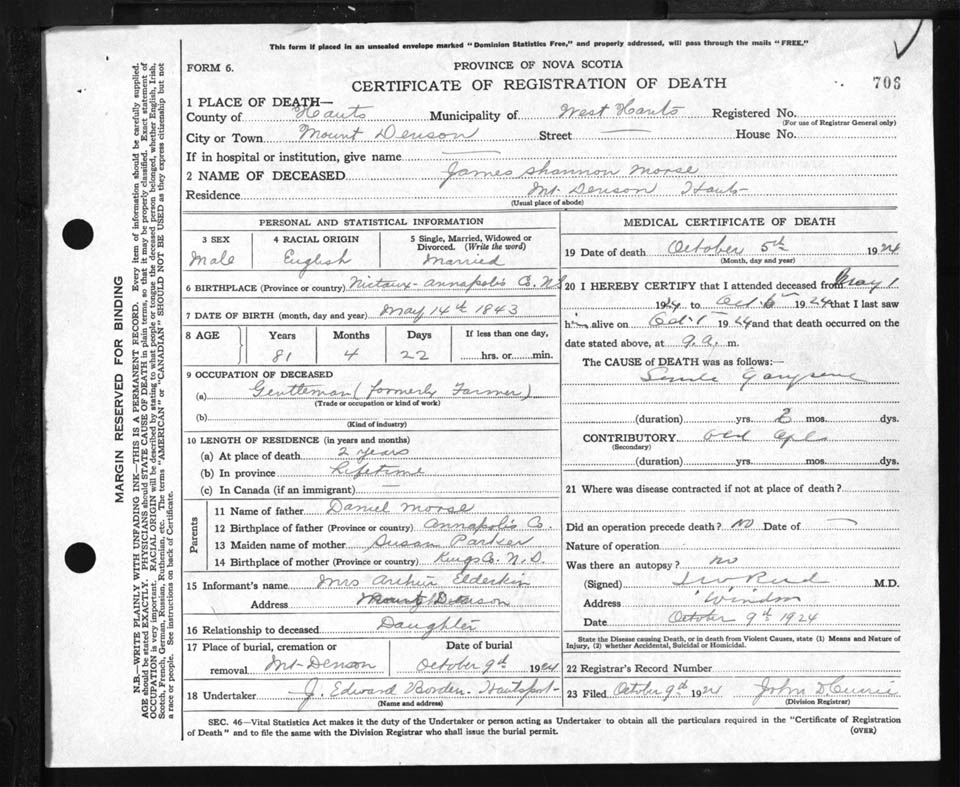 This form if placed in an unsealed envelope marked "Dominion Statistics Free," and properly addressed, will pass through the mails "FREE."
FORM 6.
PROVINCE OF NOVA SCOTIA
CERTIFICATE OF REGISTRATION OF DEATH
706
1 PLACE OF DEATH—
County of Hants Municipality of West Hants Registered No.
(For use of Registrar General only)
City or Town Mount Denson Street — House No.
If in hospital or institution, give name —
2 NAME OF DECEASED James Shannon Morse
Residence Mt. Denson Hants
(Usual place of abode)
PERSONAL AND STATISTICAL INFORMATION
3 SEX
Male
4 RACIAL ORIGIN
English
5 Single, Married, Widowed or Divorced. (Write the word)
Married
6 BIRTHPLACE (Province or country) Nictaux - Annapolis Co. N.S
7 DATE OF BIRTH (month, day and year) May 14th 1843
8 AGE
Years Months Days If less than one day,
81 4 22 hrs. or min.
9 OCCUPATION OF DECEASED
(a) Gentleman (formerly Farmer)
(Trade or occupation or kind of work)
(b)
(Kind of industry)
10 LENGTH OF RESIDENCE (in years and months)
(a) At place of death 2 years
(b) In province Lifetime
(c) In Canada (if an immigrant) —
Parents
11 Name of father Daniel Morse
12 Birthplace of father (Province or country) Annapolis Co.
13 Maiden name of mother Susan Parker
14 Birthplace of mother (Province or country) Kings Co. N.S.
15 Informant's name Mrs Arthur Elderkin
Address Mount Denson
16 Relationship to deceased Daughter
17 Place of burial, cremation or removal Mt. Denson
Date of burial
October 9th 1924
18 Undertaker J. Edward Borden. Hantsport
(Name and address)
MEDICAL CERTIFICATE OF DEATH
19 Date of death October 5th 1924
(Month, day and year)
20 I HEREBY CERTIFY that I attended deceased from May 1
1924 to Oct. 1924 that I last saw
him alive on Oct 1924 and that death occurred on the
date stated above, at 9 a. m.
The CAUSE of DEATH was as follows:—
Senile Gangrene
(duration) yrs. mos. dys.
CONTRIBUTORY old age
(Secondary)
(duration) yrs. mos. dys.
21 Where was disease contracted if not at place of death?
Did an operation precede death? No Date of —
Nature of operation
Was there an autopsy? no
(Signed) Reid M.D.
Address Windsor
Date October 9th 1924
State the Disease causing Death, or in death from Violent Causes, state (1) Means and Nature of Injury, (2) whether Accidental, Suicidal or Homicidal.
22 Registrar's Record Number
23 Filed October 9th 1924 John D Currie
(Division Registrar)
SEC. 46—Vital Statistics Act makes it the duty of the Undertaker or person acting as Undertaker to obtain all the particulars required in the "Certificate of Registration
of Death" and to file the same with the Division Registrar who shall issue the burial permit.
(OVER)
MARGIN RESERVED FOR BINDING
N.B.—WRITE PLAINLY WITH UNFADING INK—THIS IS A PERMANENT RECORD. Every item of information should be carefully supplied.
AGE should be stated EXACTLY. PHYSICIANS should STATE CAUSE OF DEATH in plain terms, so that it may be properly classified. Exact statement of
OCCUPATION is very important. RACIAL ORIGIN will be described by stating to what people or tongue the deceased person belonged, whether English, Irish,
Scotch, French, German, Russian, Ruthenian, etc. The terms "AMERICAN" or "CANADIAN" SHOULD NOT BE USED as they express citizenship but not
a race or people. See instructions on back of Certificate.